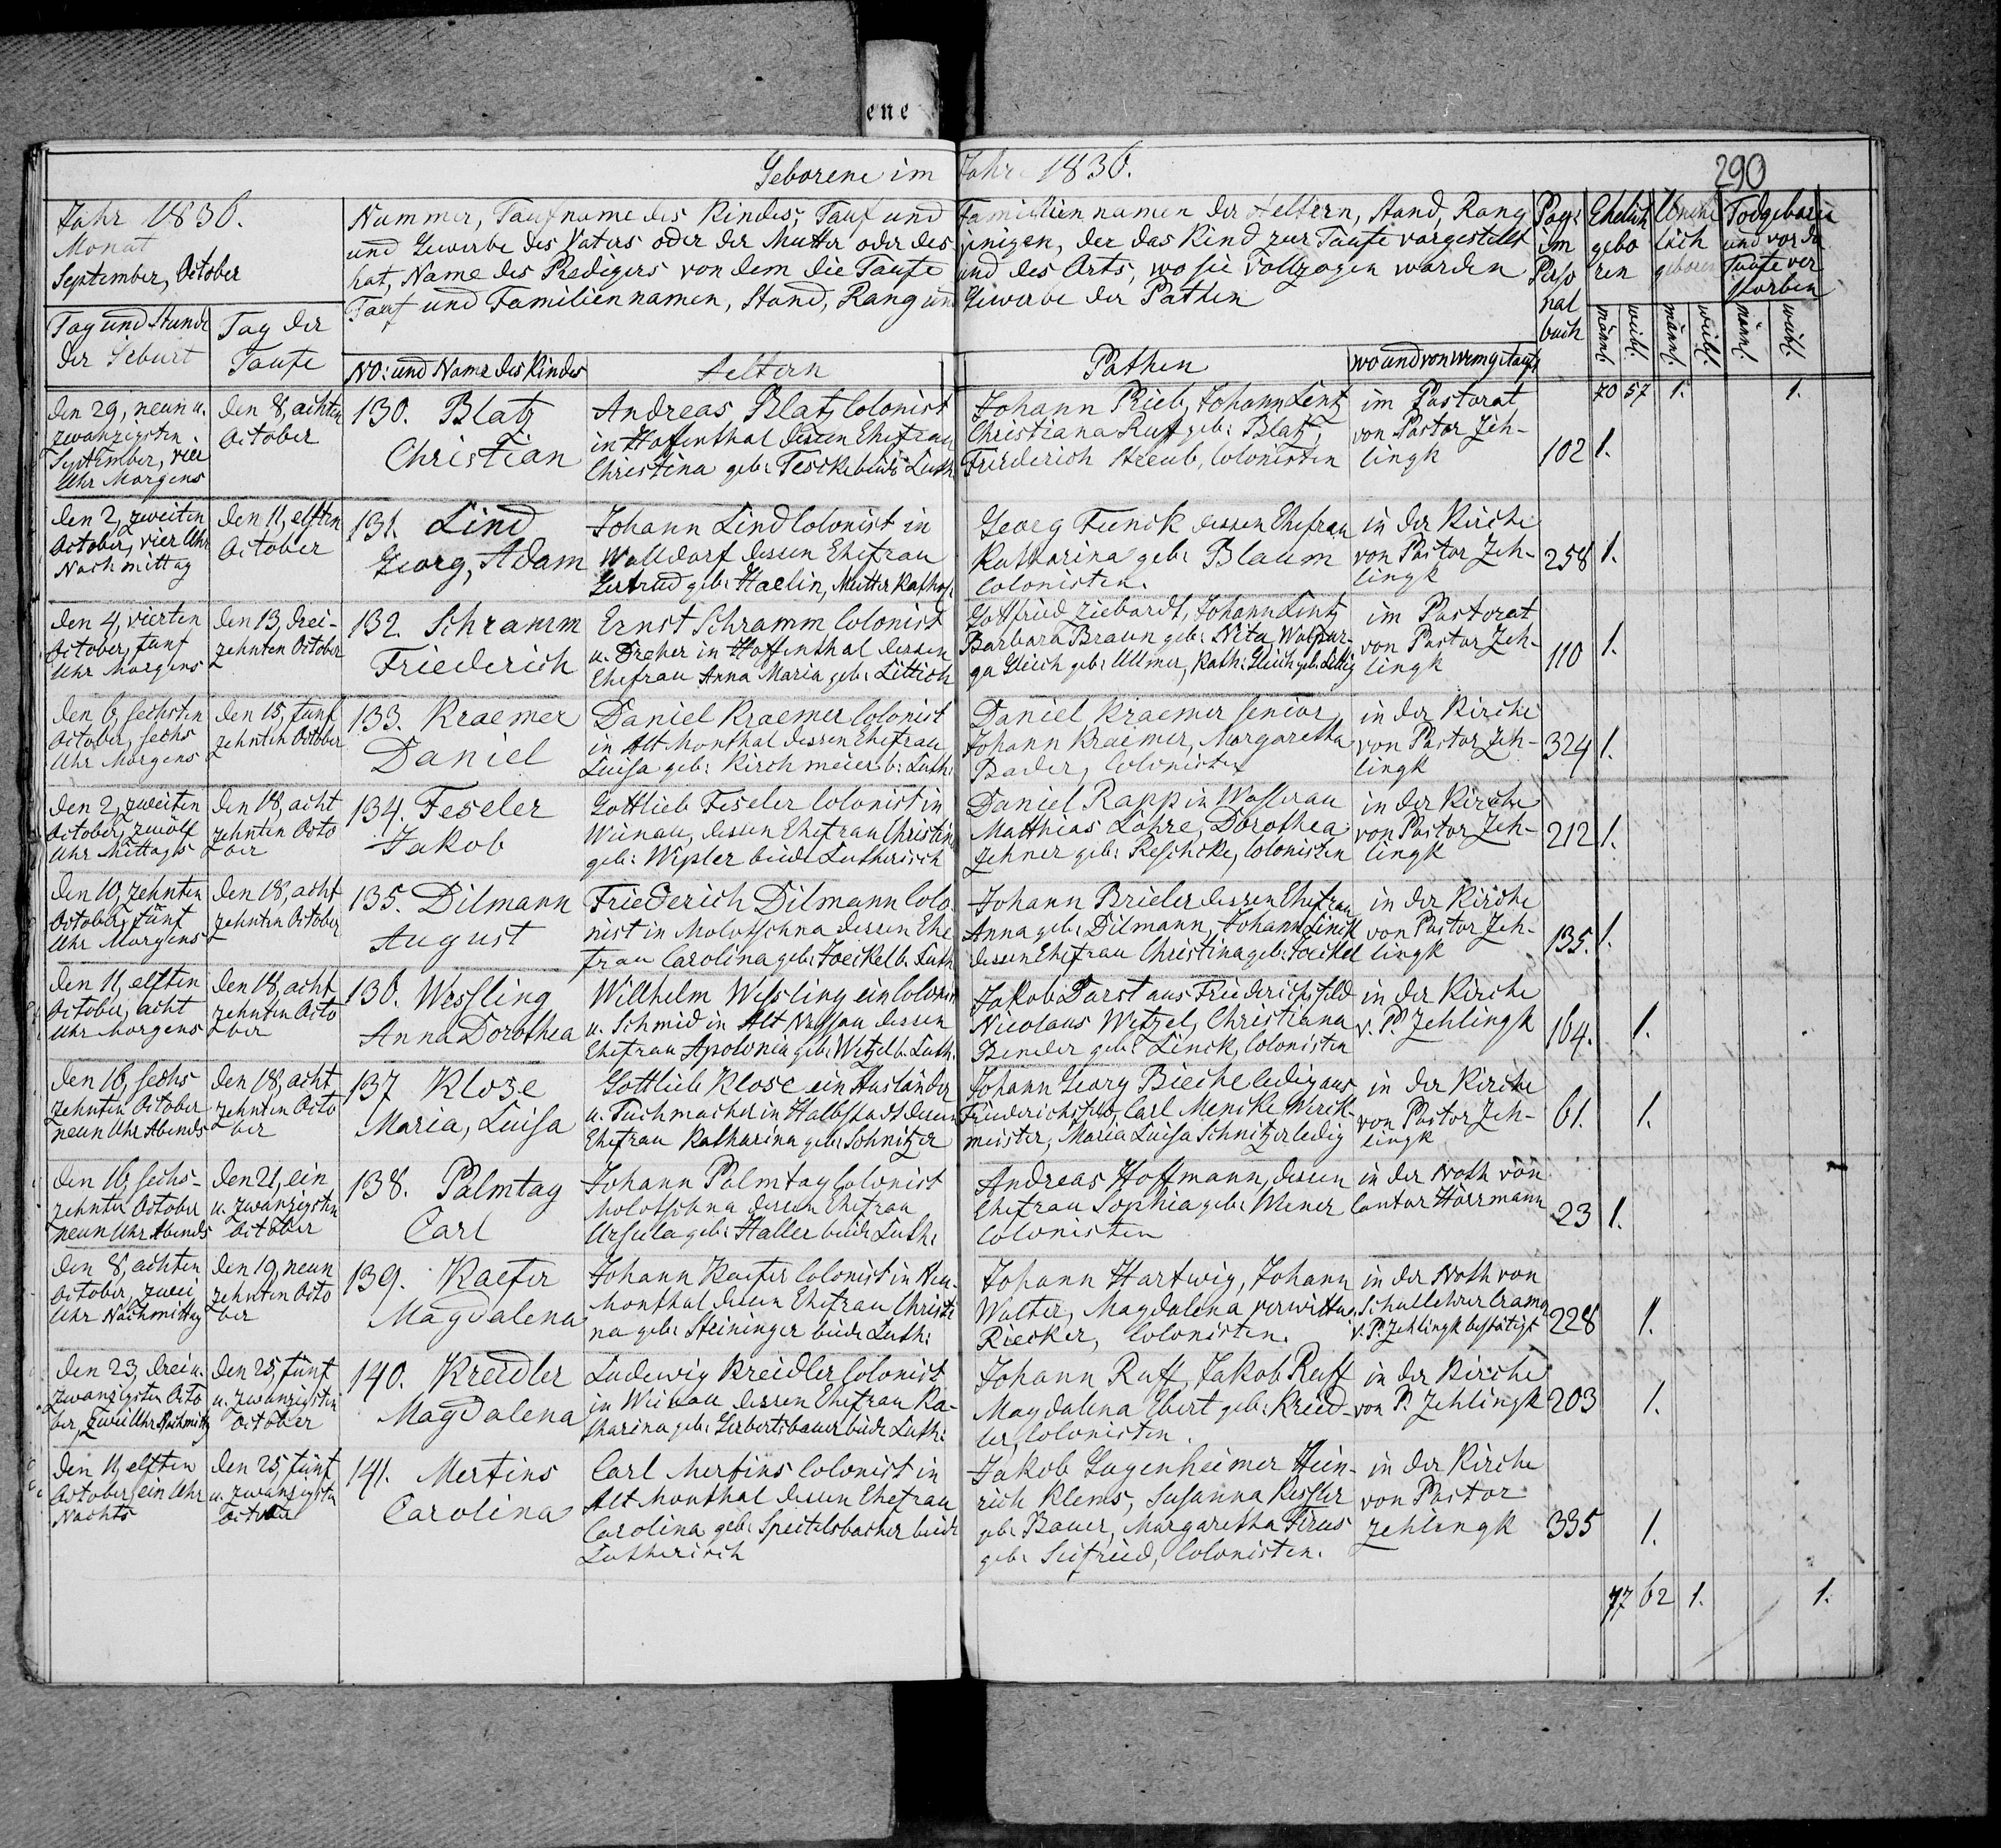 ene
Geborene im Jahre 1836.
290
Jahr 1836.
Monat
September, October
Nummer, Taufname des Kindes, Tauf und Familien namen der Aeltern, Stand, Rang
und Gewerbe des Vaters oder der Mutter oder des jenigen, der das Kind zur Taufe vorgestellt
hat, Name des Predigers von dem die Taufe und des Orts, wo sie vollzogen worden
Tauf und Familiennamen, Stand, Rang und Gewerbe der Pathen
Pag: im Perso nal buch
Ehelich gebo ren
Unehe lich geboren
Todgeborne und vor der Taufe ver storben
Tag und Stunde der Geburt
Tag der Taufe
NO: und Name des Kindes
Aeltern
Pathen
wo und von wem getauft
männl. weibl. männl. weibl. männl. weibl.
70 57 1. 1.
den 29, neun u.
zwanzigsten
September, vier
Uhr Morgens
den 8, achten
October
130. Blatz
Christian
Andreas Blatz Colonist
in Hoffenthal dessen Ehefrau
Christina geb: Teske beide Luth:
Johann Rieb, Johann Lentz
Christiana Ruf geb: Blatz,
Friederich Streub, Colonisten
im Pastorat
von Pastor Zeh-
lingk
102 1.
den 2, zweiten
October, vier Uhr
Nachmittag
den 11, elften
October
131. Lind
Georg, Adam
Johann Lind Colonist in
Walldorf dessen Ehefrau
Gertrud geb: Haelin, Mutter Kathol:
Georg Funck dessen Ehefrau
Katharina geb: Blaum
Colonisten.
in der Kirche
von Pastor Zeh-
lingk
258 1.
den 4, vierten
October, fünf
Uhr Morgens
den 13, drei-
zehnten October
132. Schramm
Friederich
Ernst Schramm Colonist
u. Dreher in Hoffenthal dessen
Ehefrau Anna Maria geb: Littich
Gottfried Ziebardt, Johann Lintz
Barbara Braun geb: Nita, Walpur-
ga Gleich geb: Ullmer, Kath: Gleich geb: Lettig
im Pastorat
von Pastor Zeh-
lingk
110 1.
den 6, sechsten
October, sechs
Uhr Morgens
den 15, fünf
zehnten October
133. Kraemer
Daniel
Daniel Kraemer Colonist
in Alt Monthal dessen Ehefrau
Luisa geb: Kirchmeier b: Luth:
Daniel Kraemer senior,
Johann Kraemer, Margaretha
Bader, Colonisten
in der Kirche
von Pastor Zeh-
lingk
324 1.
den 2, zweiten
October, zwölf
Uhr Mittags
den 18, acht
zehnten Octo
ber
134. Feseler
Jakob
Gottlieb Feseler Colonist in
Weinau, dessen Ehefrau Christina
geb: Wipler beide Lutherisch
Daniel Rapp in Wasserau
Matthias Lohre, Dorothea
Zehner geb: Reschcke, Colonisten
in der Kirche
von Pastor Zeh-
lingk
212 1.
den 10, zehnten
October, fünf
Uhr Morgens
den 18, acht
zehnten October
135. Dilmann
August
Friederich Dilmann Colo
nist in Molotschna dessen Ehe
frau Carolina geb: Joeckel b. Luth:
Johann Brieler dessen Ehefrau
Anna geb: Dilmann, Johann Linck
dessen Ehefrau Christina geb: Joeckel
in der Kirche
von Pastor Zeh-
lingk
135. 1.
den 11, elften
October, acht
Uhr Morgens
den 18, acht
zehnten Octo
ber
136. Wessling
Anna Dorothea
Willhelm Wessling ein Colonist
u. Schmid in Alt Nassau dessen
Ehefrau Apolonia geb: Wetzel b. Luth.
Jakob Darst aus Friederichsfeld
Nicolaus Wetzel, Christiana
Bender geb: Linck, Colonisten
in der Kirche
v. P. Zehlingk
164. 1.
den 16, sechs
zehnten October
neun Uhr Abends
den 18, acht
zehnten Octo
ber
137 Klose
Maria, Luisa
Gottlieb Klose ein Ausländer
u. Tuchmacher in Halbstadt dessen
Ehefrau Katharina geb: Schnitzer
Johann Georg Bieche ledig aus
Friederichsfeld, Carl Mencke Werck-
meister, Maria Luisa Schnitzer ledig
in der Kirche
von Pastor Zeh-
lingk
61. 1.
den 16, sechs-
zehnten October
neun Uhr Abends
den 21, ein
u. zwanzigsten
October
138. Palmtag
Carl
Johann Palmtag Colonist
Molotschna dessen Ehefrau
Ursula geb: Haller beide Luth:
Andreas Hoffmann, dessen
Ehefrau Sophia geb: Wener
Colonisten
in der Noth von
Cantor Hörrmann
23 1.
den 8, achten
October, zwei
Uhr Nachmittag
den 19, neun
zehnten Octo
ber
139. Kaefer
Magdalena
Johann Kaefer Colonist in Neu-
Monthal dessen Ehefrau Christi
na geb: Steininger beide Luth:
Johann Hartwig, Johann
Walter, Magdalena verwittwe
Riecker, Colonisten.
in der Noth von
Schullehrer Cramer
v. P. Zehlingk bestätigt
228 1.
den 23, drei u.
zwanzigsten Octo
ber, zwei Uhr Nachmittg
den 25, fünf
u. zwanzigsten
October
140. Kreidler
Magdalena
Ludewig Kreidler Colonist
in Weinau dessen Ehefrau Ka-
tharina geb: Gerbertsbauer beide Luth:
Johann Ruff, Jakob Ruff
Magdalena Ebert geb: Kreid-
ler, Colonisten.
in der Kirche
von P. Zehlingk
203 1.
den 11, elften
October, ein Uhr
Nachts
den 25, fünf
u. zwanzigsten
October
141. Mertins
Carolina
Carl Mertins Colonist in
Alt Monthal dessen Ehefrau
Carolina geb: Speitelsbacher beide
Lutherisch
Jakob Gugenheimer Hein-
rich Klems, Susanna Kessler
geb: Bauer, Margaretha Firus
geb: Seifried, Colonisten.
in der Kirche
von Pastor
Zehlingk
335 1.
77 62 1. 1.